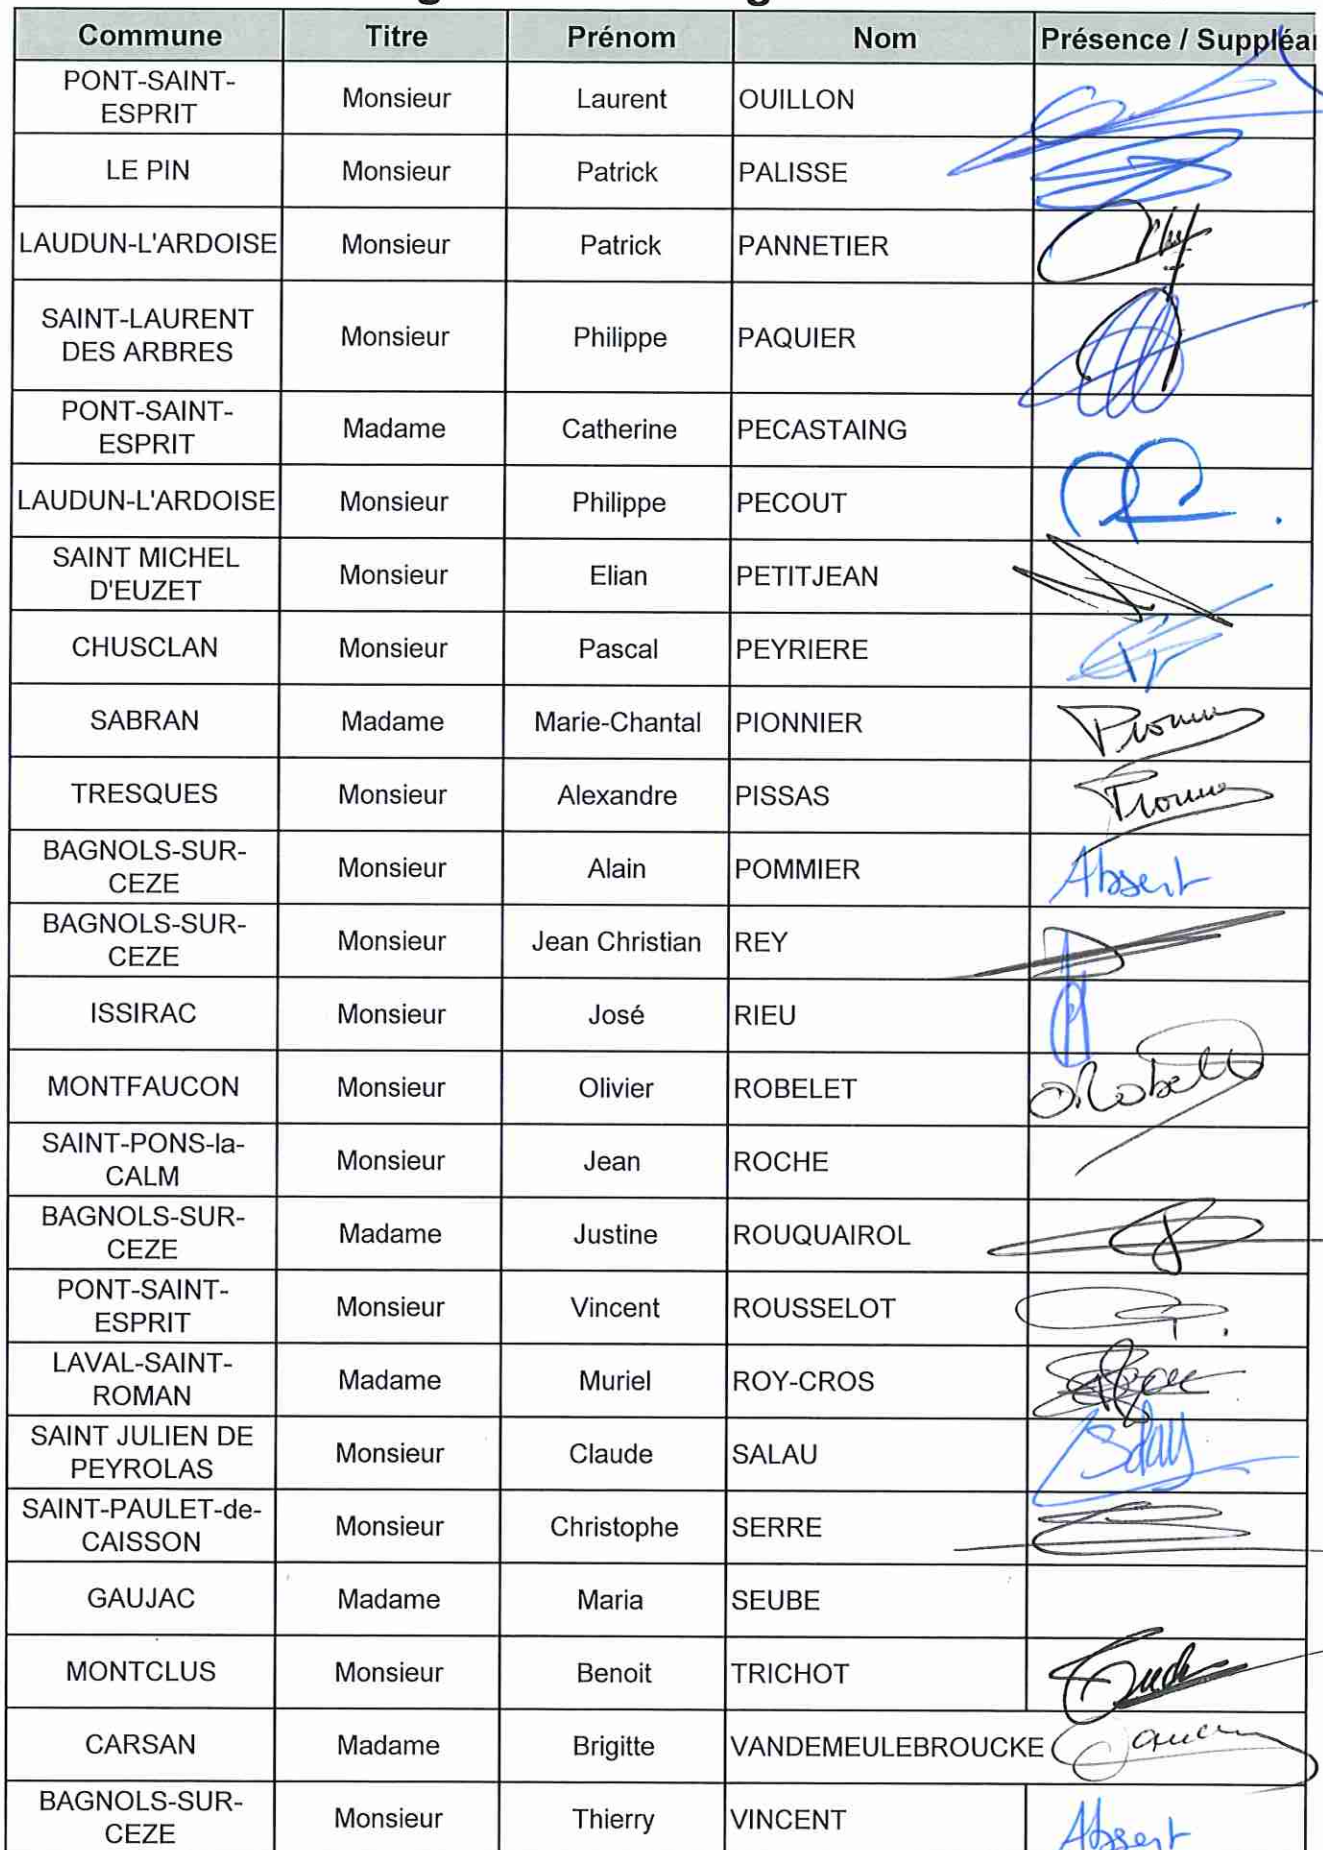 Commune Titre Prénom Nom Présence / Suppléan
PONT-SAINT-
ESPRIT Monsieur Laurent OUILLON
LE PIN Monsieur Patrick PALISSE
LAUDUN-L'ARDOISE Monsieur Patrick PANNETIER
SAINT-LAURENT
DES ARBRES Monsieur Philippe PAQUIER
PONT-SAINT-
ESPRIT Madame Catherine PECASTAING
LAUDUN-L'ARDOISE Monsieur Philippe PECOUT
SAINT MICHEL
D'EUZET Monsieur Elian PETITJEAN
CHUSCLAN Monsieur Pascal PEYRIERE
SABRAN Madame Marie-Chantal PIONNIER
TRESQUES Monsieur Alexandre PISSAS
BAGNOLS-SUR-
CEZE Monsieur Alain POMMIER Absent
BAGNOLS-SUR-
CEZE Monsieur Jean Christian REY
ISSIRAC Monsieur José RIEU
MONTFAUCON Monsieur Olivier ROBELET
SAINT-PONS-la-
CALM Monsieur Jean ROCHE
BAGNOLS-SUR-
CEZE Madame Justine ROUQUAIROL
PONT-SAINT-
ESPRIT Monsieur Vincent ROUSSELOT
LAVAL-SAINT-
ROMAN Madame Muriel ROY-CROS
SAINT JULIEN DE
PEYROLAS Monsieur Claude SALAU
SAINT-PAULET-de-
CAISSON Monsieur Christophe SERRE
GAUJAC Madame Maria SEUBE
MONTCLUS Monsieur Benoit TRICHOT
CARSAN Madame Brigitte VANDEMEULEBROUCKE
BAGNOLS-SUR-
CEZE Monsieur Thierry VINCENT Absent